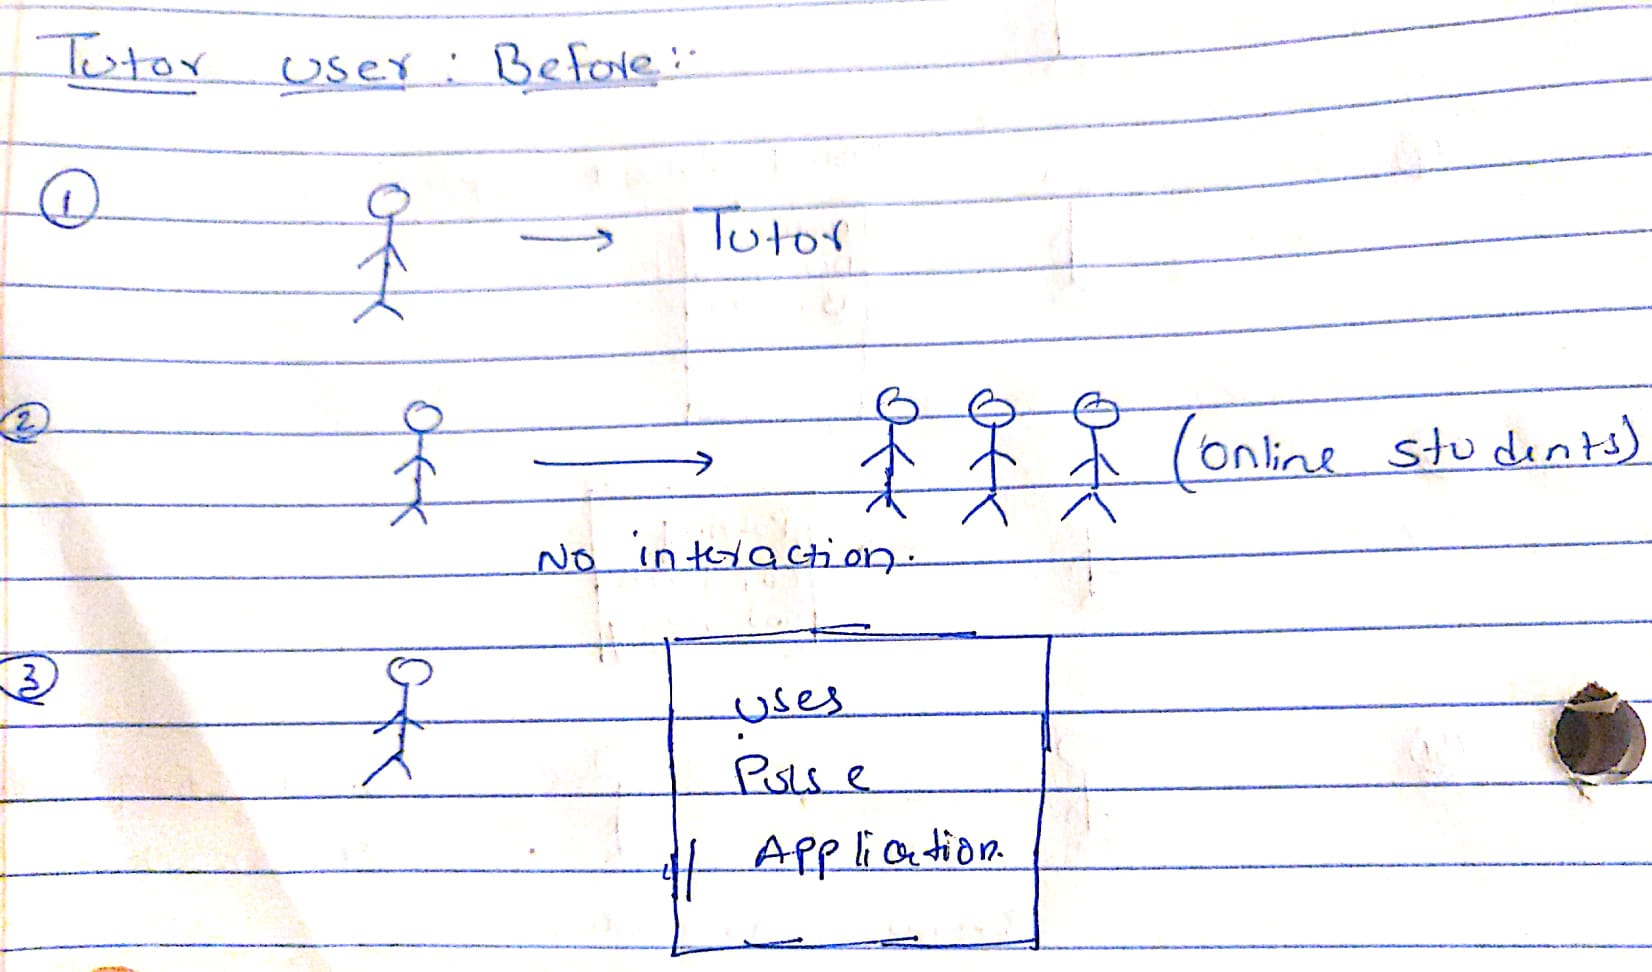 Tutor user : Before :-
① → Tutor
② → (online students)
No interaction.
③ uses
Pulse
Application.